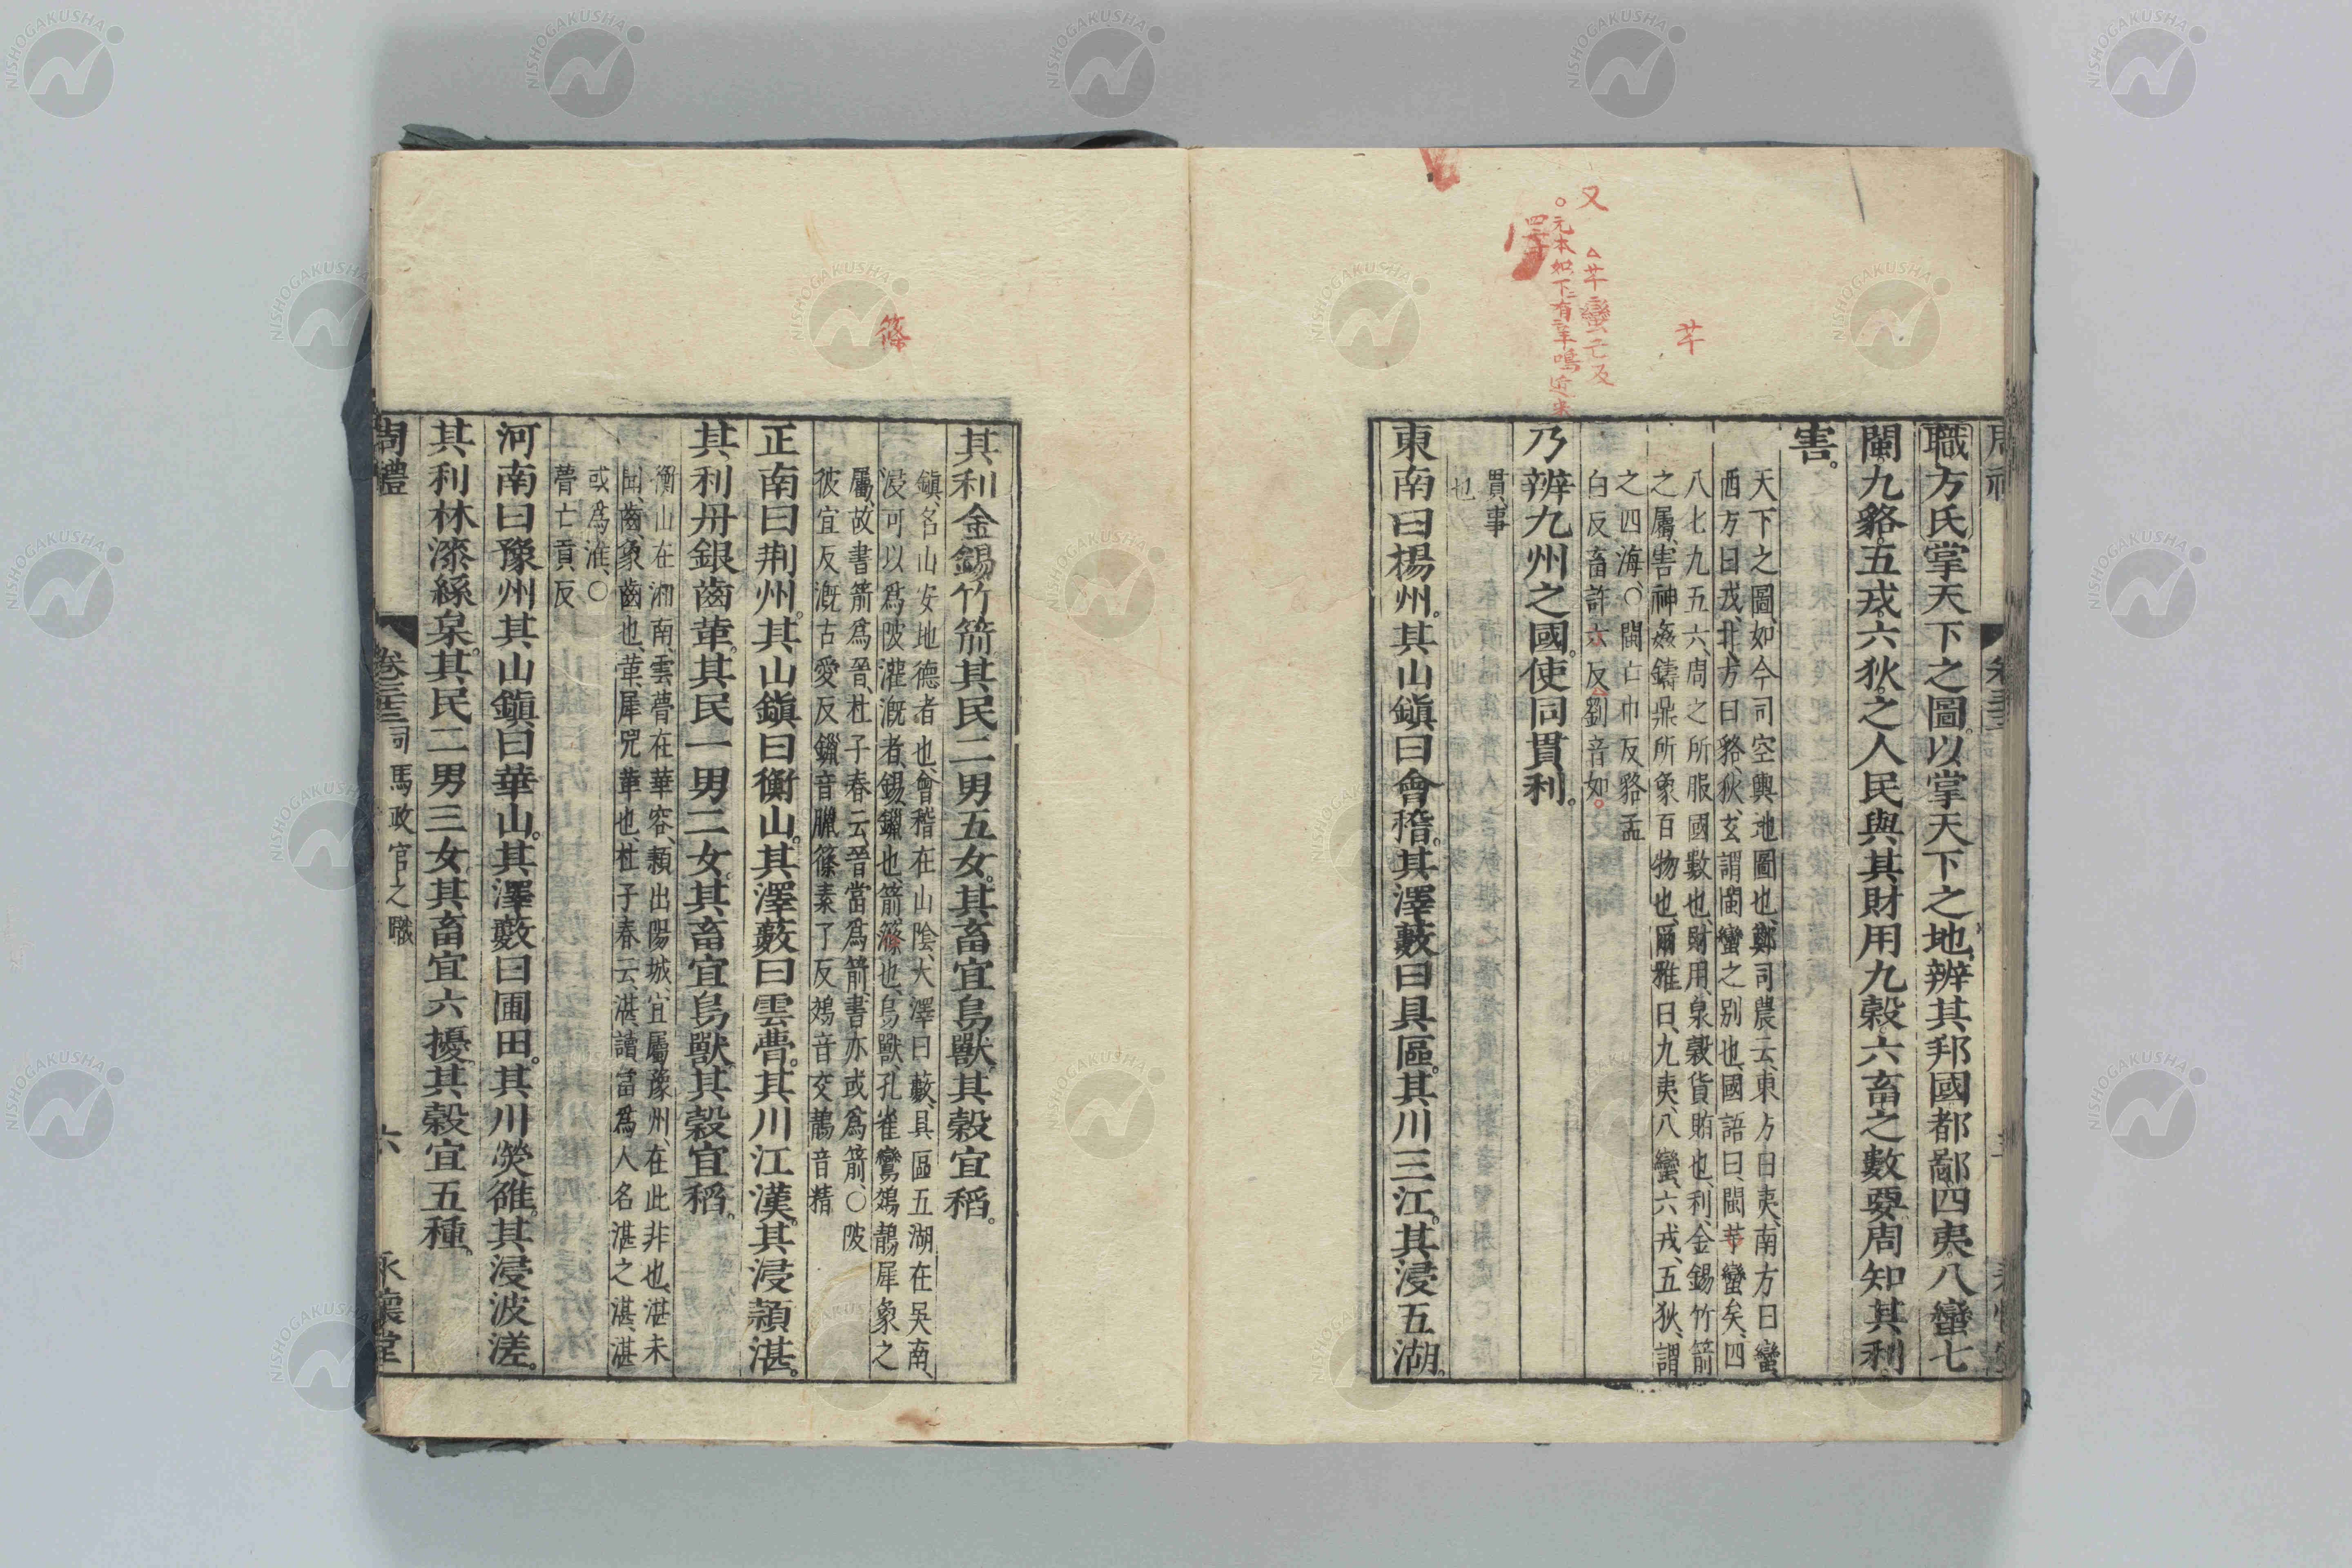 職方氏掌天下之圖。以掌天下之地、辨其邦國都鄙四夷八蠻七
閩九貉五戎六狄之人民與其財用九穀六畜之數要周知其利
害。
天下之圖、如今司空輿地圖也、鄭司農云、東方曰夷、南方曰蠻、
西方曰戎、北方曰貉、狄、玄謂閩蠻之別也、國語曰、閩芊蠻矣、四
八七九五六、周之所服國數也、財用、泉穀貨賄也、利、金錫竹箭
之屬、害神姦鑄鼎所象百物也、爾雅曰、九夷、八蠻、六戎、五狄、謂
之四海、○閩亡巾反貉孟
白反畜許六反劉音如
乃辨九州之國。使同貫利。
貫、事
也
東南曰楊州。其山鎭曰會稽。其澤藪曰具區。其川三江。其浸五湖。
芊
又
△芊蠻亡及
○元本如下有羊鳴近米
四字
其利金錫竹箭其民二男五女。其畜宜鳥獸其穀宜稻。
鎭、名山安地德者也、會稽在山陰、大澤曰藪、具區五湖在吳南、
浸可以爲陂灌漑者、錫、鑞也、箭篠也、鳥獸、孔雀鸞鵁鶄犀象之
屬、故書箭爲晉、杜子春云、晉當爲箭、書亦或爲箭、○陂
彼宜反漑古愛反鑞音臘篠素了反鵁音交鶄音精
正南曰荆州。其山鎭曰衡山。其澤藪曰雲瞢。其川江漢。其浸潁湛。
其利丹銀齒革。其民一男二女。其畜宜鳥獸其穀宜稻。
衡山在湘南、雲瞢在華容、潁出陽城、宜屬豫州、在此非也、湛未
聞、齒、象齒也、革、犀兕革也、杜子春云、湛、讀當爲人名湛之湛、湛
或爲淮、○
瞢亡貢反
河南曰豫州其山鎭曰華山。其澤藪曰圃田。其川熒雒。其浸波溠。
其利林漆絲枲。其民二男三女。其畜宜六擾其穀宜五種。
周禮 卷三十三 司馬政官之職 六 永懷堂
篠